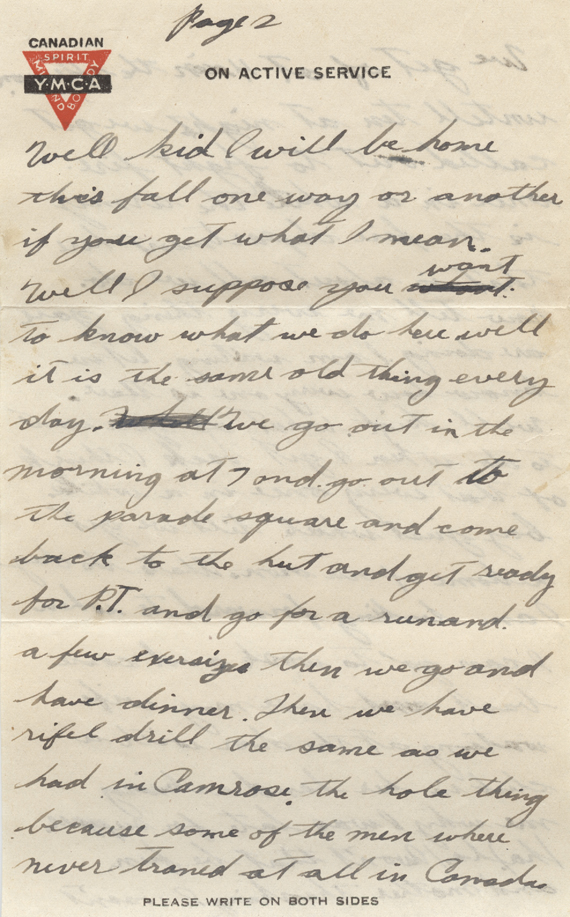 Page 2
CANADIAN
SPIRIT
Y·M·C·A
MIND
BODY
ON ACTIVE SERVICE
Well kid I will be home
this fall one way or another
if you get what I mean.
Well I suppose you want
to know what we do here well
it is the same old thing every
day. we go out in the
morning at 7 and go out to
the parade square and come
back to the hut and get ready
for P.T. and go for a run and
a few exersizes then we go and
have dinner. Then we have
rifel drill the same as we
had in Camrose. the hole thing
because some of the men where
never traned at all in Canada
PLEASE WRITE ON BOTH SIDES